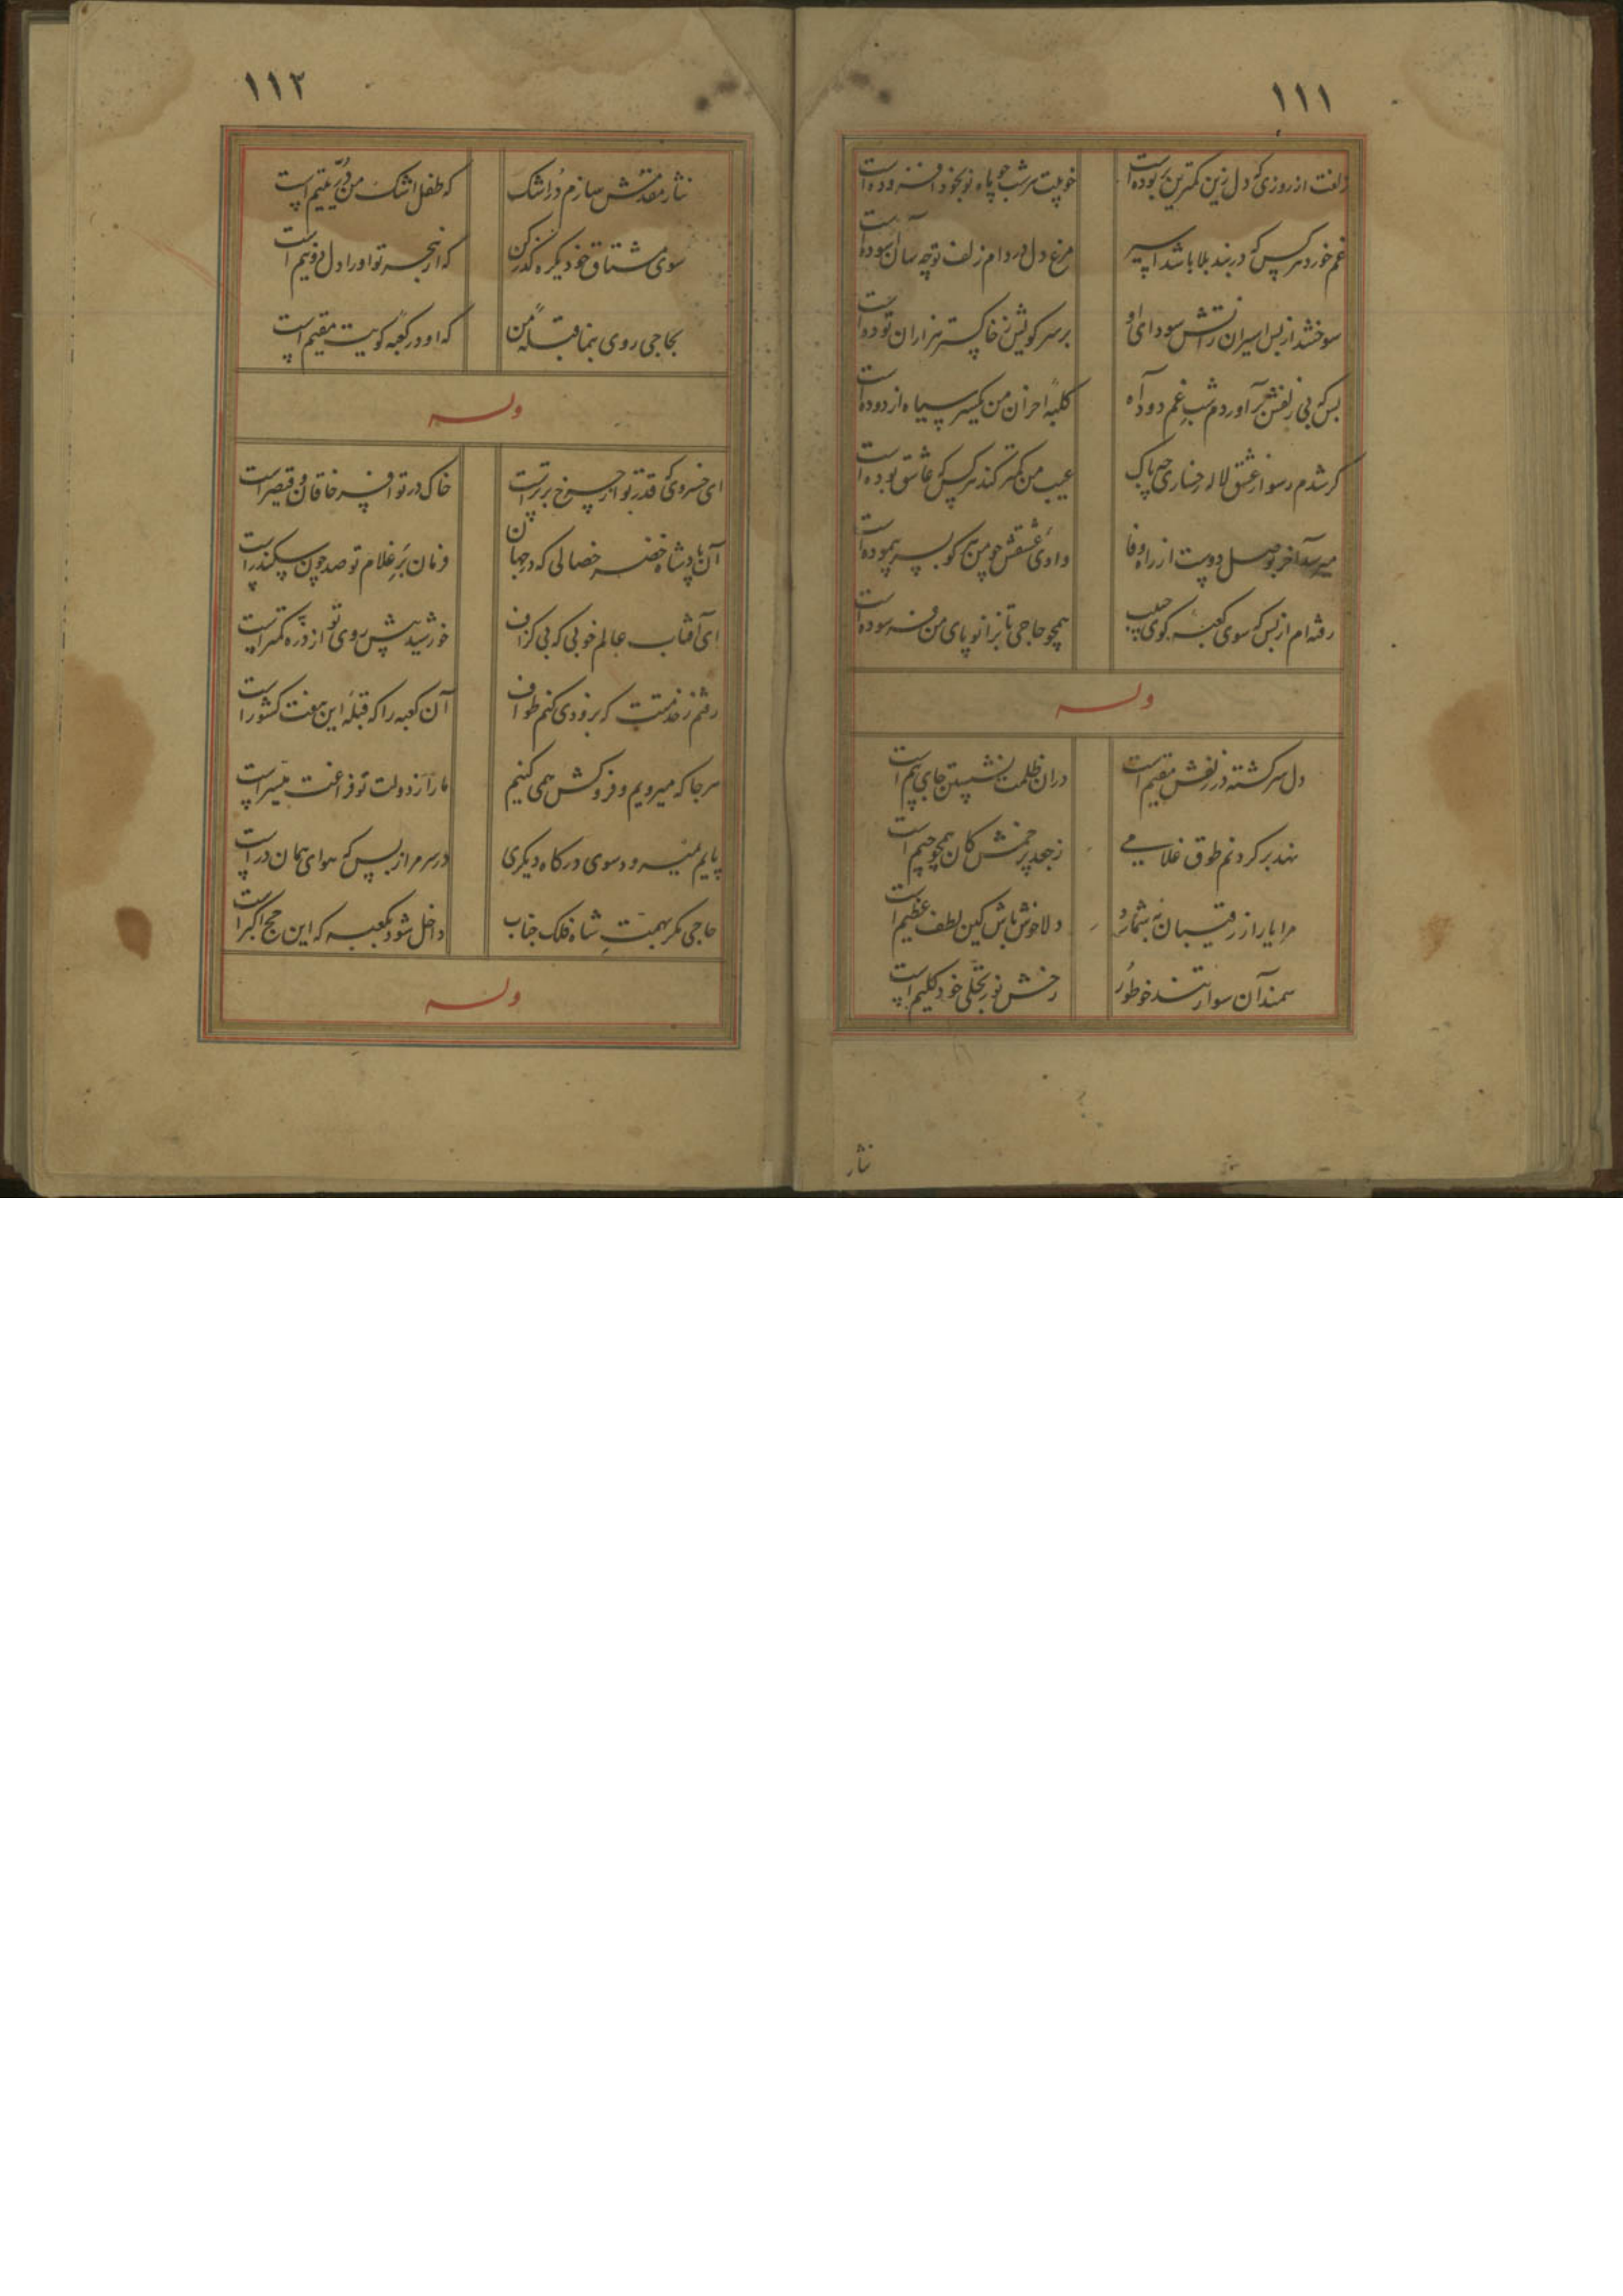 ۱۱۱
زلفت از روزی که دل زین کمترین بوده است خوبیت هر شب چو ماه نو بخود افزوده است
غم خورد هر کس که در بند بلا باشد اسیر مرغ دل در دام زلف تو چه سان آسوده است
سوختند از بس اسیران زآتش سودای او بر سر کویش ز خاکستر هزاران توده است
بس که بی زلفش برآوردم شب غم دود آه کلبه احزان من یکسر سیاه از دوده است
گر شدم رسوا ز عشق لاله رخساری چه باک عیب من کمتر کند هر کس که عاشق بوده است
میرسد آخر بوصل دوست از راه وفا وادی عشقش چو من هر کو بسر پیموده است
رفته ام از بس که سوی کعبه کوی حبیب همچو حاجی تا بزانو پای من فرسوده است
وله
دل سرگشته در زلفش مقیم است در ان ظلمت نشستن جای بیم است
نهد بر گردنم طوق غلامی ز جعد پر خمش کان همچو جیم است
مرا یار از رقیبان نه شمارد دلا خوش باش کین لطف عظیم است
سمند آن سوار تند خو طور رخش نور تجلی خود کلیم است
نثار
۱۱۲
نثار مقدمش سازم در اشک که طفل اشک من در یتیم است
سوی مشتاق خود یکره گذر کن که از هجر تو او را دل دو نیم است
بحاجی روی بنما قبله من که او در کعبه کویت مقیم است
وله
ای خسروی که قدر تو از چرخ برتر است خاک در تو افسر خاقان و قیصر است
آن پادشاه خضر خصالی که در جهان فرمان بر غلام تو صد چون سکندر است
ای آفتاب عالم خوبی که بی گزاف خورشید پیش روی تو از ذره کمتر است
رفتم ز خدمتت که بزودی کنم طواف آن کعبه را که قبله این هفت کشور است
هر جا که میرویم و فروکش همی کنیم ما را ز دولت تو فراغت میسر است
پایم نمیرود سوی درگاه دیگری در سر مرا ز بس که هوای همان در است
حاجی مگر بهمت شاه فلک جناب داخل شود بکعبه که این حج اکبر است
وله